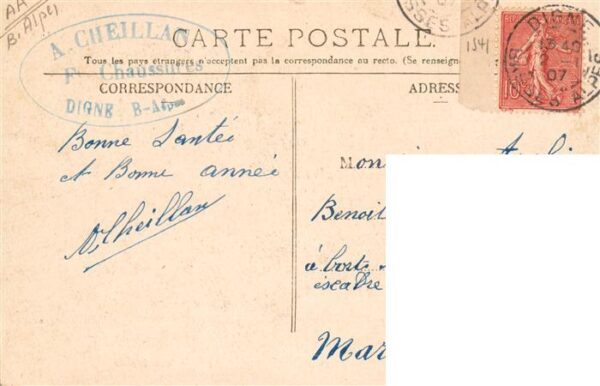 AA
B. Alpes
A. CHEILLAN
Ft Chaussures
DIGNE B-Alpes
CARTE POSTALE
Tous les pays étrangers n'acceptent pas la correspondance au recto. (Se renseign
CORRESPONDANCE
ADRES
1541
DIGNE
07
BASSES ALPES
10
Bonne Santée
et Bonne année
A Cheillan
Mon
Benoit
à bord
escadre
Mar